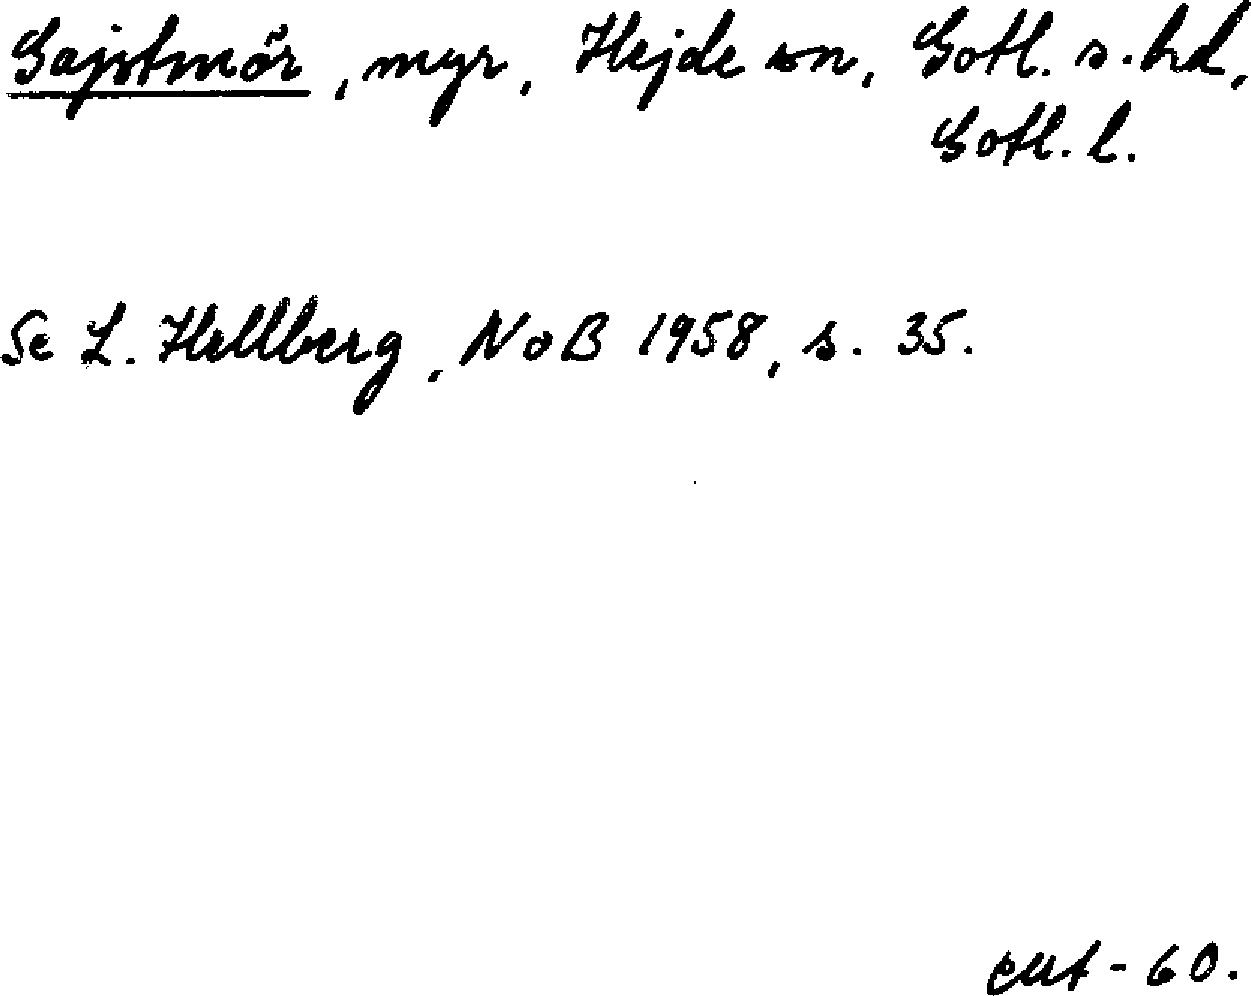 Gajstmör, myr, Hejde sn, Gotl. s. hd,
Gotl. l.
Se L. Hellberg, NoB 1958, s. 35.
-60.